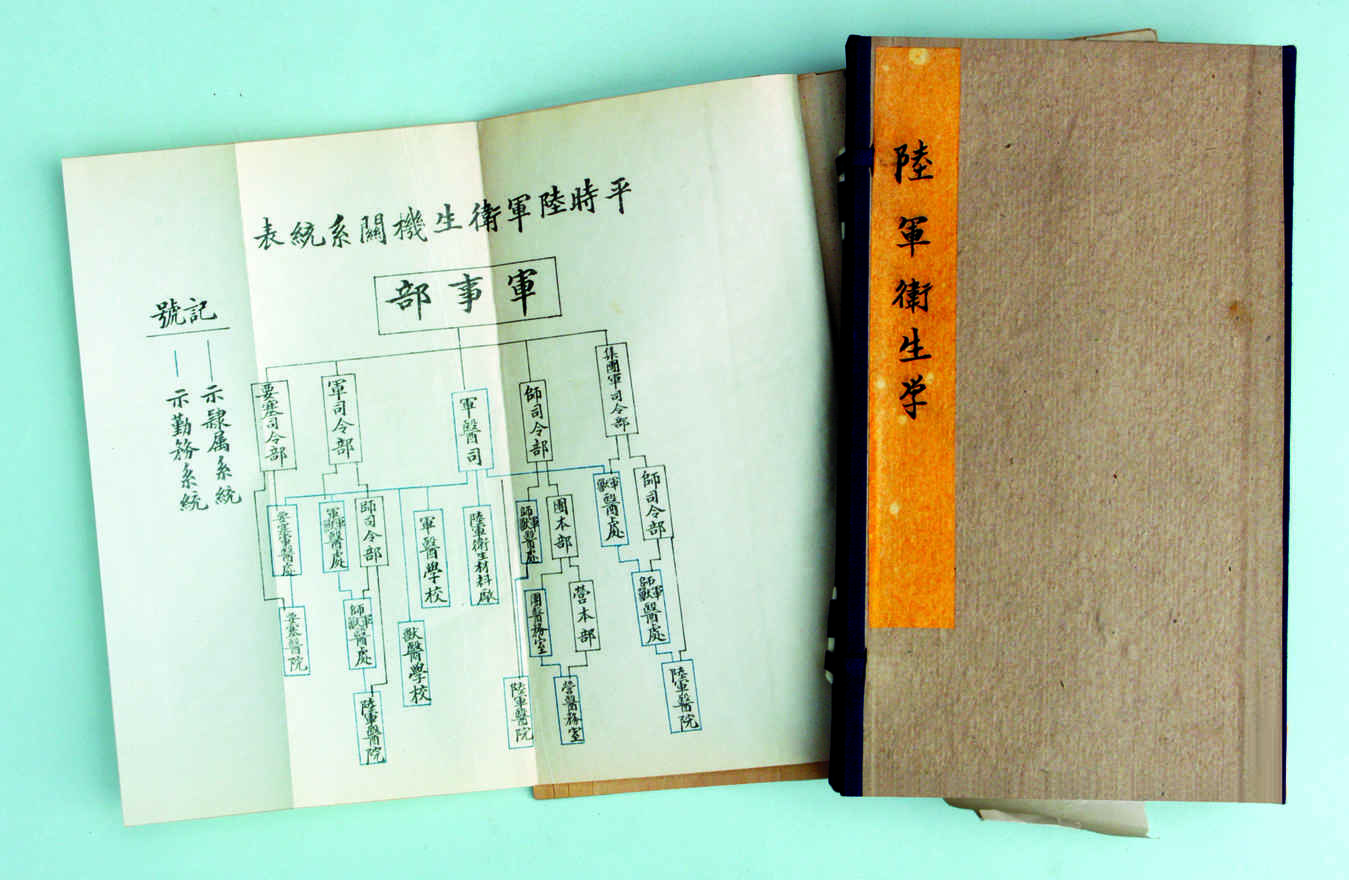 平時陸軍衛生機關系統表
軍事部
集團軍司令部
師司令部
軍醫司
軍司令部
要塞司令部
師司令部
軍獸醫處
團本部
師軍獸醫處
陸軍衛生材料廠
軍醫學校
師司令部
軍軍獸醫處
要塞軍醫處
師軍獸醫處
營本部
團醫務室
獸醫學校
師軍獸醫處
要塞醫院
陸軍醫院
營醫務室
陸軍醫院
陸軍醫院
記號
示隸属系統
示勤務系統
陸軍衛生学